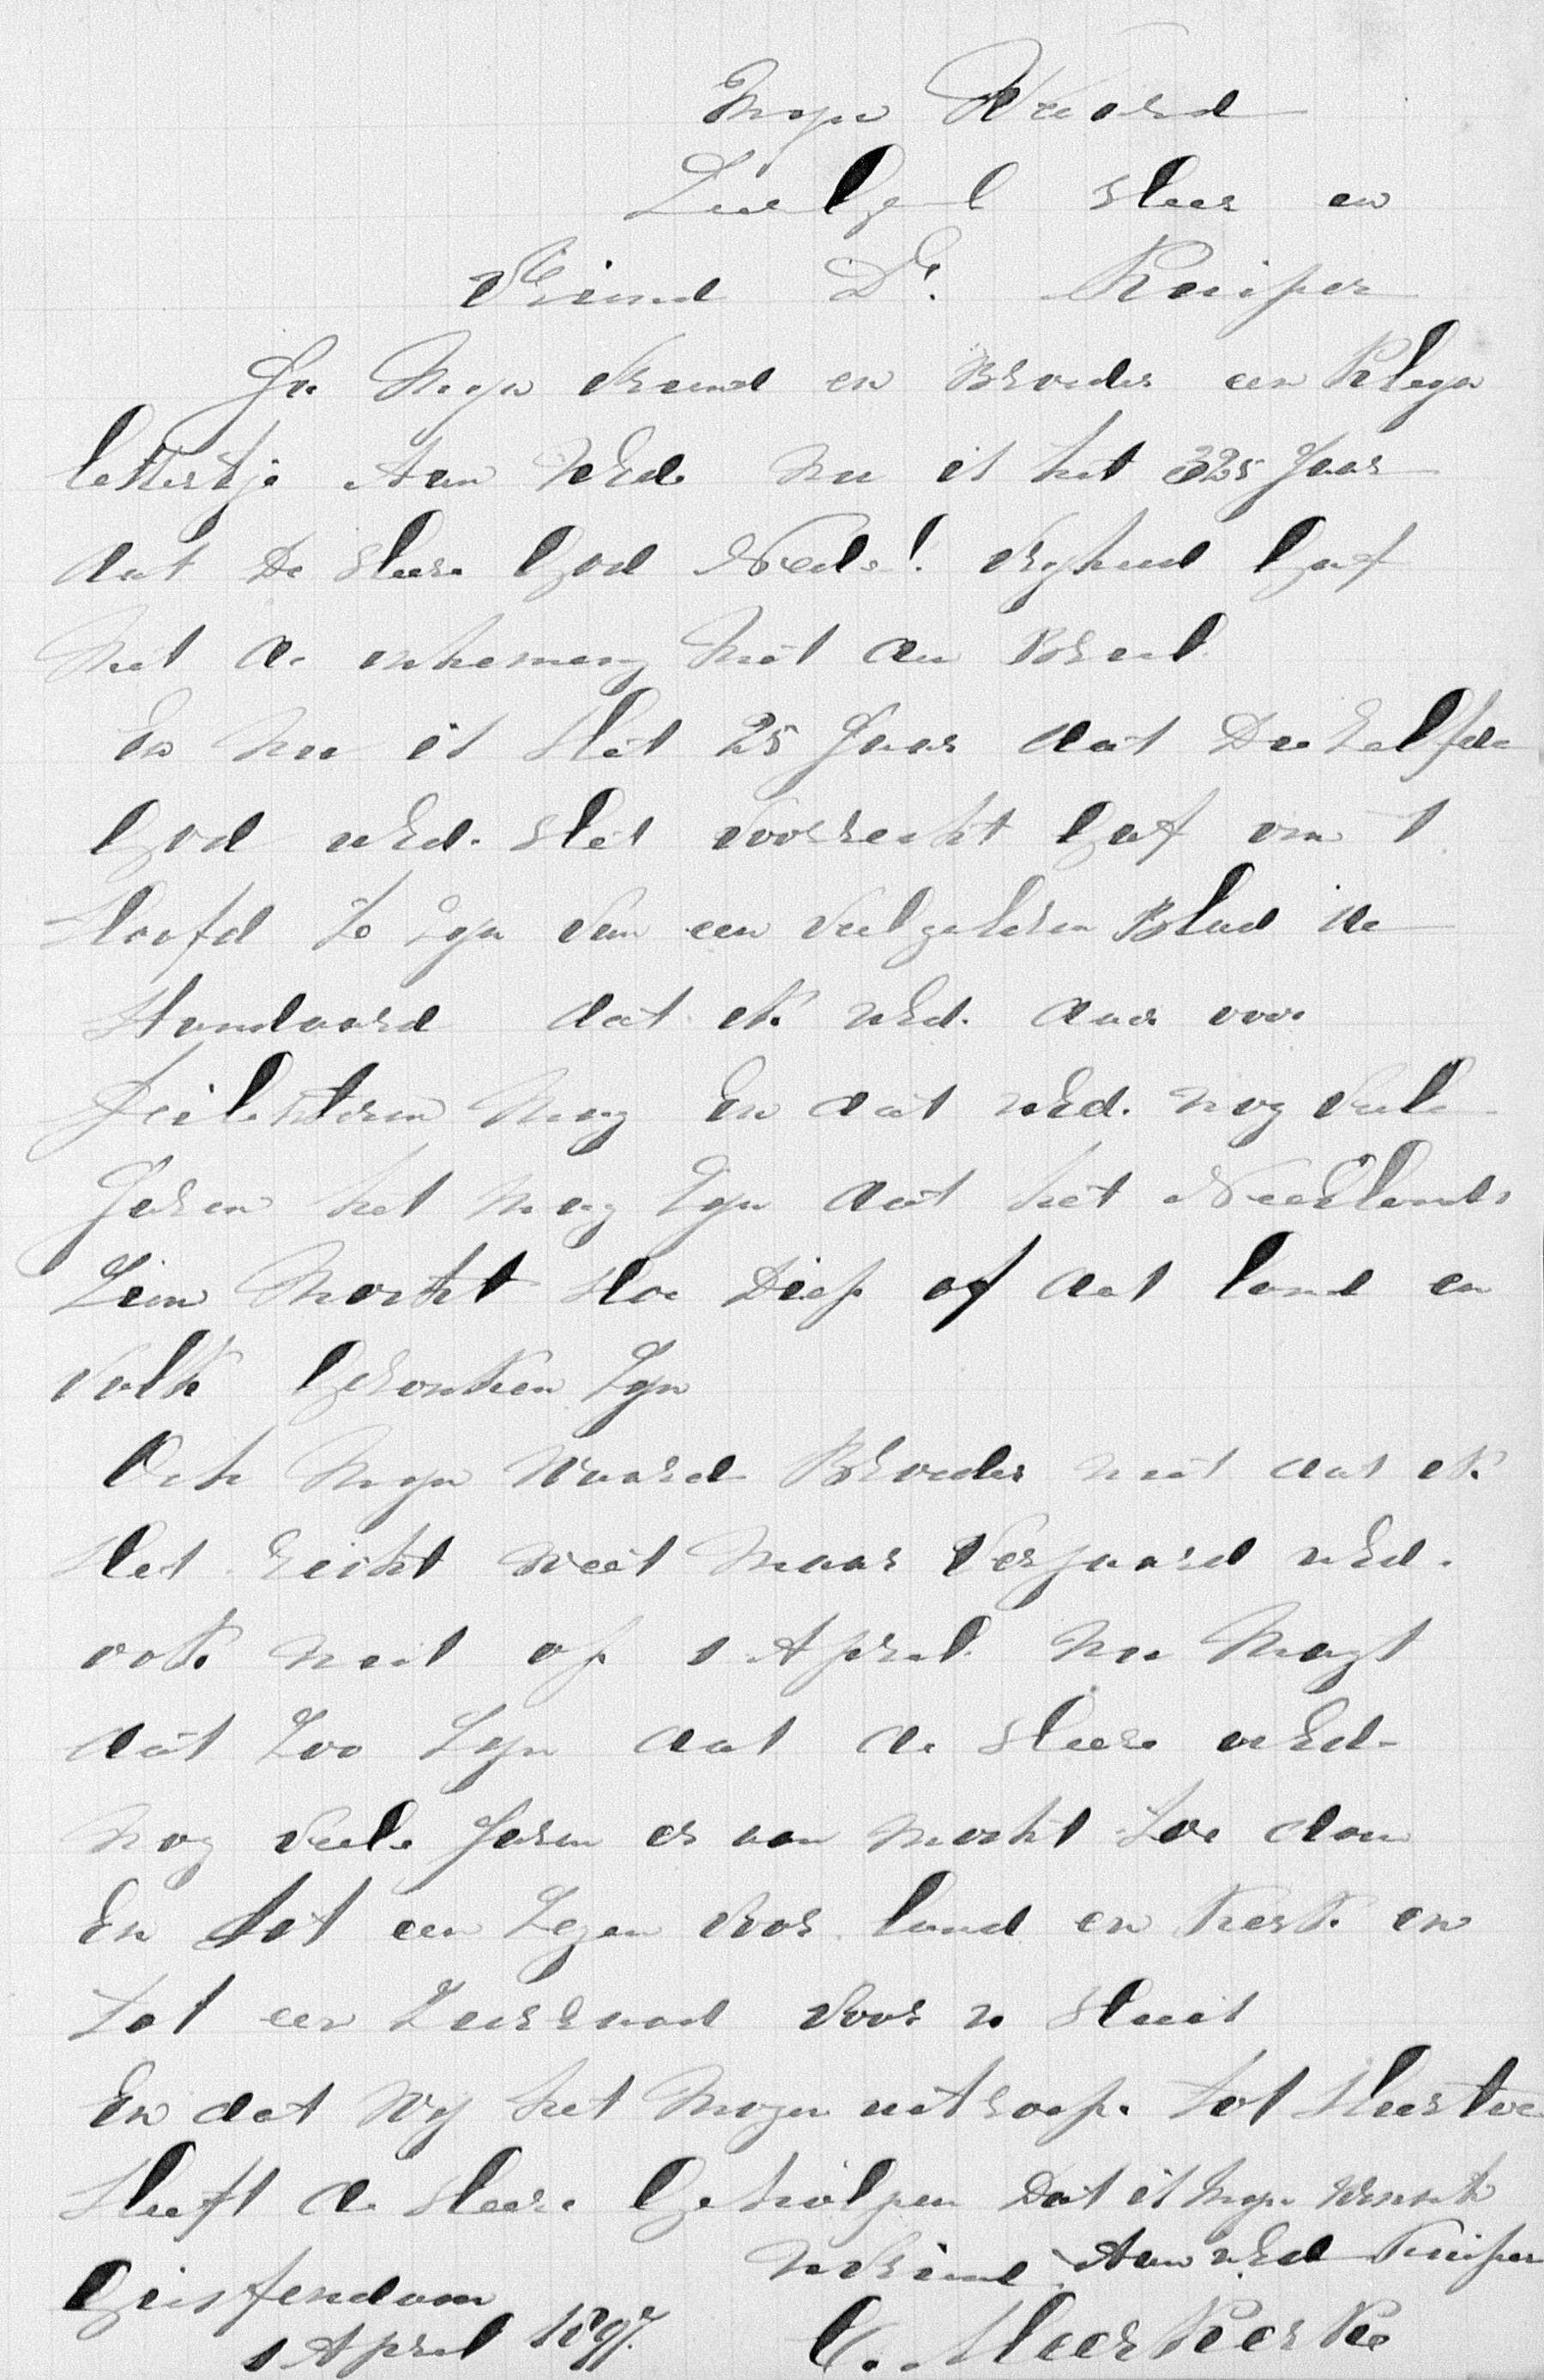 Mijn Waard
Zeel Gel Heer en
Vriend Dr. Kuiper
Ja Mijn Vriend en Broeder een Klijn
lettertje Aan UEd. Nu is het 325 Jaar
dat De Heere God Neder! Vryheid Gaf
Met de inkoming Met den Briel
En Nu is Het 25 Jaar dat De Zelfde
God UEd. Het Voorrecht Gaf om t
Hoofd te Zijn Van een Veelgelesen Blad de
Standaard dat ik UEd. daar voor
Feilesteren Mag En dat UEd. nog Veele
Jaren het mag Zijn dat het Neerlands
Zien Mocht Hoe Diep of dat land en
Volk Gesonken Zijn
Och Mijn Waarde Broeder niet dat ik
Het Zeiker weet Maar Verjaard UEd.
ook niet op 1 April Nu Magt
dat Zoo Zijn dat de Heere UEd.
Nog Veele Jaren er aan mocht Toe doen
En tot een Zegen Voor land en Kerk en
tot een Zeerraad Voor U Huis
En dat Wij het Mogen uitroep. tot Hiertoe
Heeft de Heere Geholpen Dat is Mijn Wensch
UVriend Aan UEd Kuiper
Geissendam
1 April 1897. C. Meerkerk